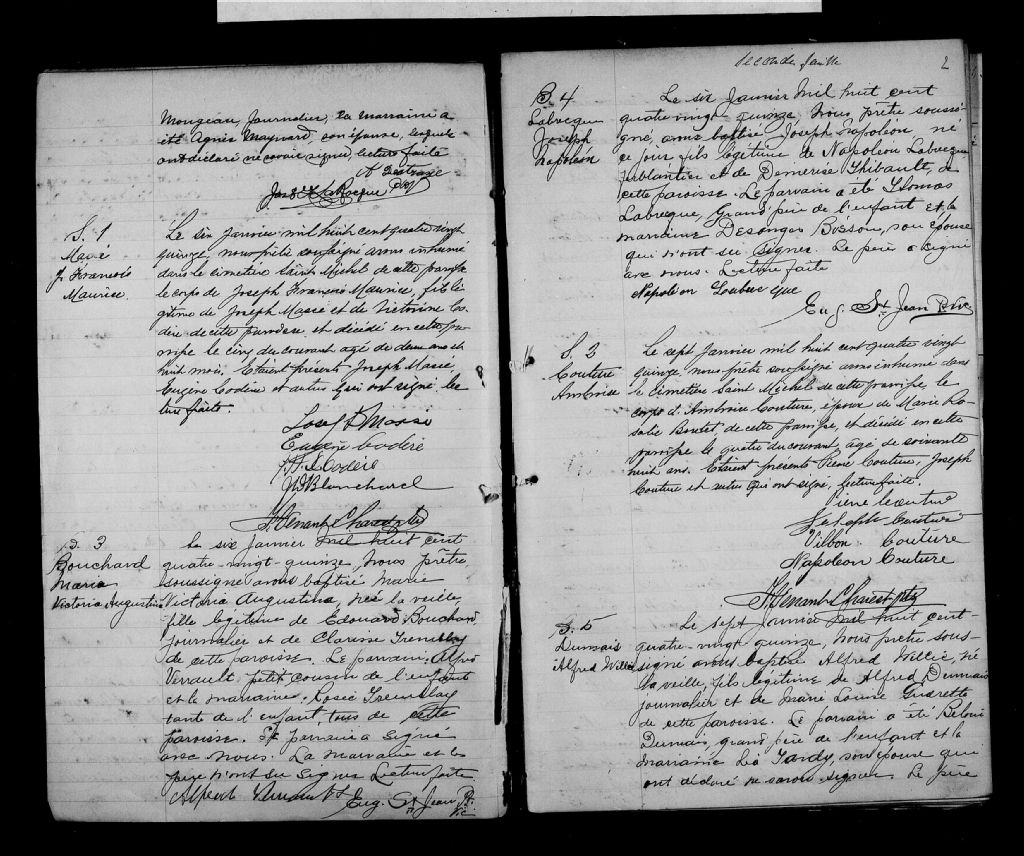 Mongeau, Journalier, La marraine a
été Agnès Maynard, son épouse, lesquels
ont déclaré ne savoir signer, lecture faite
Jos. LaRocque
S. 1
Massé
J. François
Maurice
Le six Janvier mil huit cent quatre vingt
quinze, nous prêtre soussigné avons inhumé
dans le cimetière Saint Michel de cette paroisse
le corps de Joseph François Maurice, fils lé-
gitime de Joseph Massé et de Victorine Co-
dère de cette paroisse et décédé en cette pa-
roisse le cinq du courant agé de deux ans et
huit mois. Etaient présent Joseph Massé,
Eugène Codère et autres qui ont signé lec-
ture faite.
Josef Masse
Eugène Codère
Codère
Blanchard
B. 3
Bouchard
Maria
Victoria Augustina
Le six Janvier mil huit cent
quatre-vingt-quinze, Nous prêtre
soussigné avons baptisé Marie
Victoria Augustina, née la veille
fille legitime de Edouard Bouchard
journalier et de Clarisse Tremblay
de cette paroisse. Le parrain: Alfred
Verrault, petit cousin de l'enfant
et la marraine: Rosée Tremblay
tante de l'enfant tous de cette
paroisse. Le parrain a signé
avec nous. La marraine et le
père n'ont su signer Lecture faite
Eug. St Jean Ptr.
Vic
Seconde feuille
2
B. 4
Labrecque
Joseph
Napoléon
Le six Janvier Mil huit cent
quatre-vingt-quinze, Nous Prêtre soussi-
gné, avons baptisé Joseph Napoléon, né
ce jour fils légitime de Napoléon Labrecque
ferblantier et de Demerise Thibault, de
cette paroisse. Le parrain a été Thomas
Labrecque, Grand père de l'enfant et la
marraine Desanges Bisson, son épouse
qui n'ont su signer. Le père a signé
avec nous. Lecture faite
Napoléon Labrecque
Eug. St Jean Ptr Vic
S. 2
Couture
Ambroise
Le sept Janvier mil huit cent quatre vingt
quinze, nous prêtre soussigné avons inhumé dans
le cimetière Saint Michel de cette paroisse, le
corps d'Ambroise Couture, époux de Marie Ro-
salie Boutet de cette paroisse, et décédé en cette
paroisse le quatre du courant, agé de soixante
huit ans. Etaient présents Pierre Couture, Joseph
Couture et autres qui ont signé, lecture faite.
Pierre Couture
Joseph Couture
Vilbon Couture
Napoléon Couture
B. 5
Dumais
Alfred Willie
Le sept Janvier mil huit cent-
quatre-vingt quinze, Nous prêtre sous-
signé avons baptisé Alfred Willie, né
la veille, fils légitime de Alfred Dumais
journalier et de Marie Louise Guerette
de cette paroisse. Le parrain a été
Dumais grand père de l'enfant et la
marraine Léa Tardy, son épouse qui
ont déclaré ne savoir signer Le père